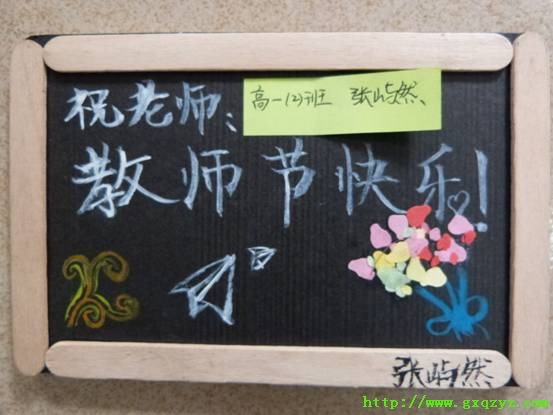 祝老师:
高一(2)班 张屿然
教师节快乐!
张屿然
http://www.gxqzyz.com